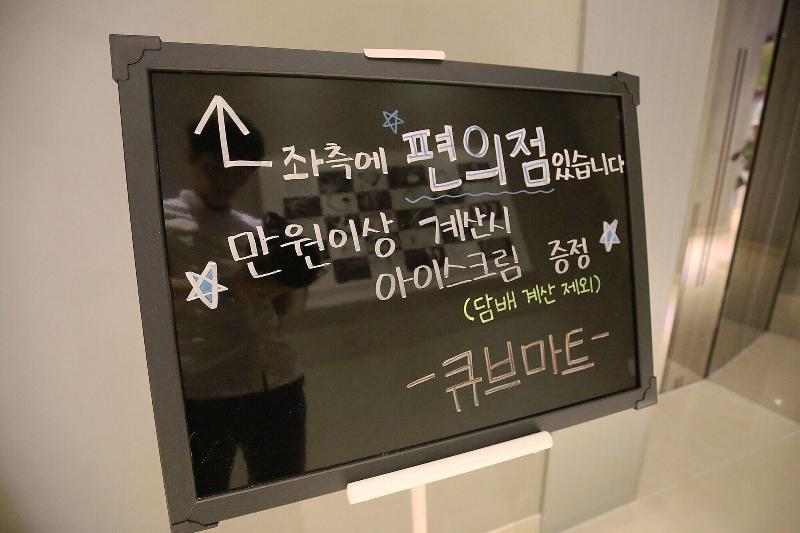 좌측에 편의점있습니다
만원이상 계산시
아이스크림 증정
(담배 계산 제외)
-큐브마트-